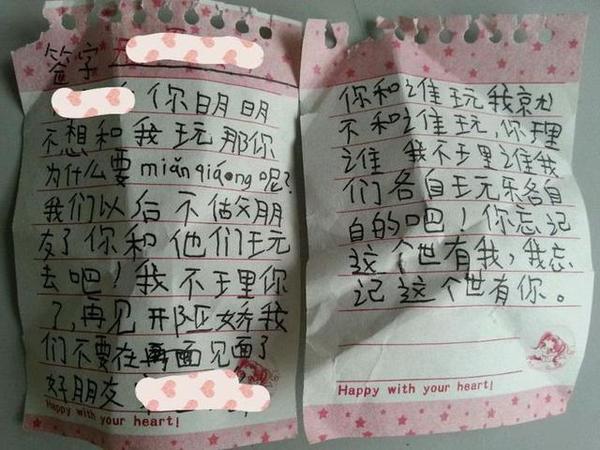 签字
你明明
不想和我玩那你
为什么要miǎnqiáong呢?
我们以后不做朋
友了你和他们玩
去吧!我不理你
了,再见 娇我
们不要在面见面了
好朋友
Happy with your heart!
你和谁玩我就
不和谁玩,你理
谁 我不理谁我
们各自玩乐各自
自的吧!你忘记
这个世有我,我忘
记这个世有你。
Happy with your heart!